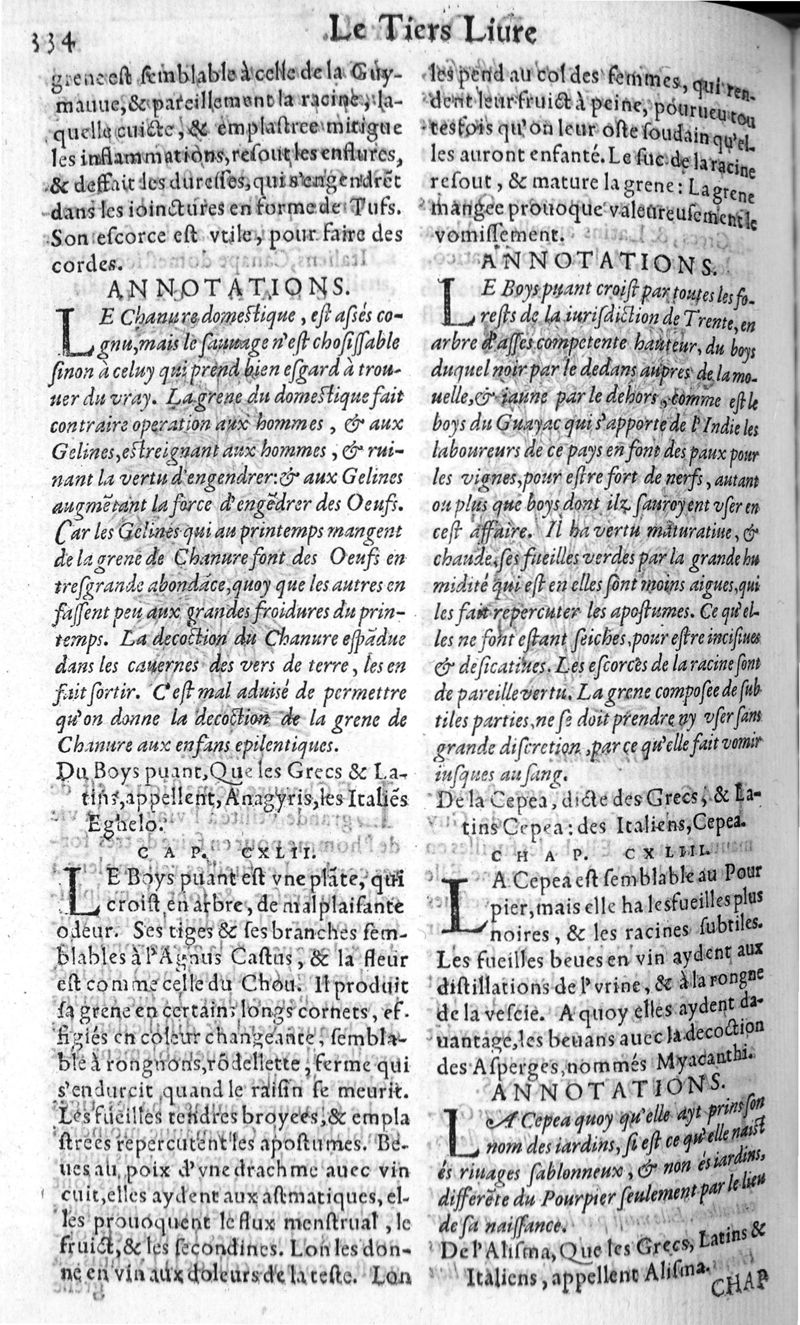 334
Le Tiers Liure
grene est semblable à celle de la Guy-
mauue, & pareillement la racine, la-
quelle cuicte, & emplastree mitigue
les inflammations, resout les enflures,
& deffait les duresses, qui s'engendrẽt
dans les ioinctures en forme de Tufs.
Son escorce est vtile, pour faire des
cordes.
ANNOTATIONS.
LE Chanure domestique, est assés co-
gnu, mais le sauuage n'est choisissable
sinon à celuy qui prend bien esgard à trou-
uer du vray. La grene du domestique fait
contraire operation aux hommes, & aux
Gelines, estreignant aux hommes, & rui-
nant la vertu d'engendrer: & aux Gelines
augmẽtant la force d'engẽdrer des Oeufs.
Car les Gelines qui au printemps mangent
de la grene de Chanure font des Oeufs en
tresgrande abondãce, quoy que les autres en
fassent peu aux grandes froidures du prin-
temps. La decoction du Chanure espãdue
dans les cauernes des vers de terre, les en
fait sortir. C'est mal aduisé de permettre
qu'on donne la decoction de la grene de
Chanure aux enfans epilentiques.
Du Boys puant, Que les Grecs & La-
tins, appellent, Anagyris, les Italiẽs
Eghelo.
CAP. CXLII.
LE Boys puant est vne plãte, qui
croist en arbre, de mal plaisante
odeur. Ses tiges & ses branches sem-
blables à l'Agnus Castus, & la fleur
est comme celle du Chou. Il produit
sa grene en certains longs cornets, ef-
figiés en coleur changeante, sembla-
ble à rongnons, rõdellette, ferme qui
s'endurcit quand le raisin se meurit.
Les fueilles tendres broyees, & empla
strees repercutent les apostumes. Be-
ues au poix d'vne drachme auec vin
cuit, elles aydent aux astmatiques, el-
les prouoquent le flux menstrual, le
fruict, & les secondines. Lon les don-
ne en vin aux doleurs de la teste. Lon
les pend au col des femmes, qui ren-
dent leur fruict à peine, pourueu tou
tesfois qu'on leur oste soudain qu'el-
les auront enfanté. Le suc de la racine
resout, & mature la grene: La grene
mangée prouoque valeureusement le
vomissement.
ANNOTATIONS.
LE Boys puant croist par toutes les fo-
rests de la iurisdiction de Trente, en
arbre d'asses competente hauteur, du boys
duquel noir par le dedans aupres de la mo-
uelle, & iaune par le dehors, comme est le
boys du Guayac qui s'apporte de l'Indie les
laboureurs de ce pays en font des paux pour
les vignes, pour estre fort de nerfs, autant
ou plus que boys dont ilz sauroyent vser en
cest affaire. Il ha vertu maturatiue, &
chaude, ses fueilles verdes par la grande hu
midité qui est en elles sont moins aigues, qui
les fait repercuter les apostumes. Ce qu'el-
les ne font estant seiches, pour estre incisiues
& desicatiues. Les escorces de la racine sont
de pareille vertu. La grene composee de sub
tiles parties, ne se doit prendre ny vser sans
grande discretion, par ce qu'elle fait vomir
iusques au sang.
De la Cepea, dicte des Grecs, & La-
tins Cepea: des Italiens, Cepea.
CHAP. CXLIII.
LA Cepea est semblable au Pour
pier, mais elle ha les fueilles plus
noires, & les racines subtiles.
Les fueilles beues en vin aydent aux
distillations de l'vrine, & à la rongne
de la vescie. A quoy elles aydent da-
uantage, les beuans auec la decoction
des Asperges, nommés Myacanthi.
ANNOTATIONS.
LA Cepea quoy qu'elle ayt prins son
nom des iardins, si est ce qu'elle naist
és riuages sablonneux, & non és iardins,
differẽte du Pourpier seulement par le lieu
de sa naissance.
De l'Alisma, Que les Grecs, Latins &
Italiens, appellent Alisma.
CHAP